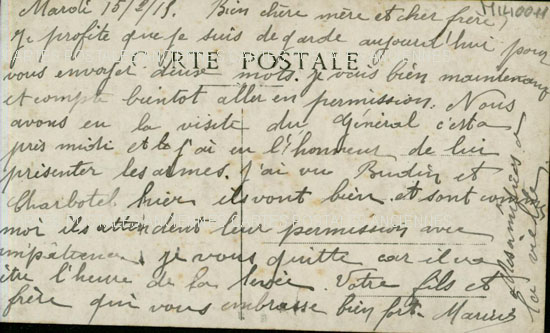 Mardi 15/2/15. Bien chère mère et cher frère,
Je profite que je suis de garde aujourd'hui pour
CARTE POSTALE
vous envoyer deux mots. je vais bien maintenant
et compte bientot aller en permission. Nous
avons eu la visite du Général cet a
près midi et la j'ai eu l'honneur de lui
présenter les armes. j'ai vu Budin et
Charbotel hier ils vont bien et sont comme
moi ils attendent leur permission avec
impatience. je vous quitte car il va
être l'heure de la Votre fils et
frère qui vous embrasse bien fort. Marius
la vieille